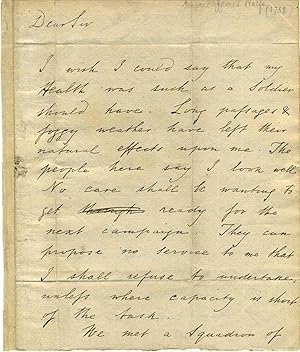 Dear Sir
I wish I could say that my
Health was such as a Soldier
should have. Long passages &
foggy weather have left their
natural effects upon me. The
people here say I look well.
No care shall be wanting to
get through ready for the
next campaign. They can
propose no service to me that
I shall refuse to undertake,
unless where capacity is short
of the task.
We met a Squadron of